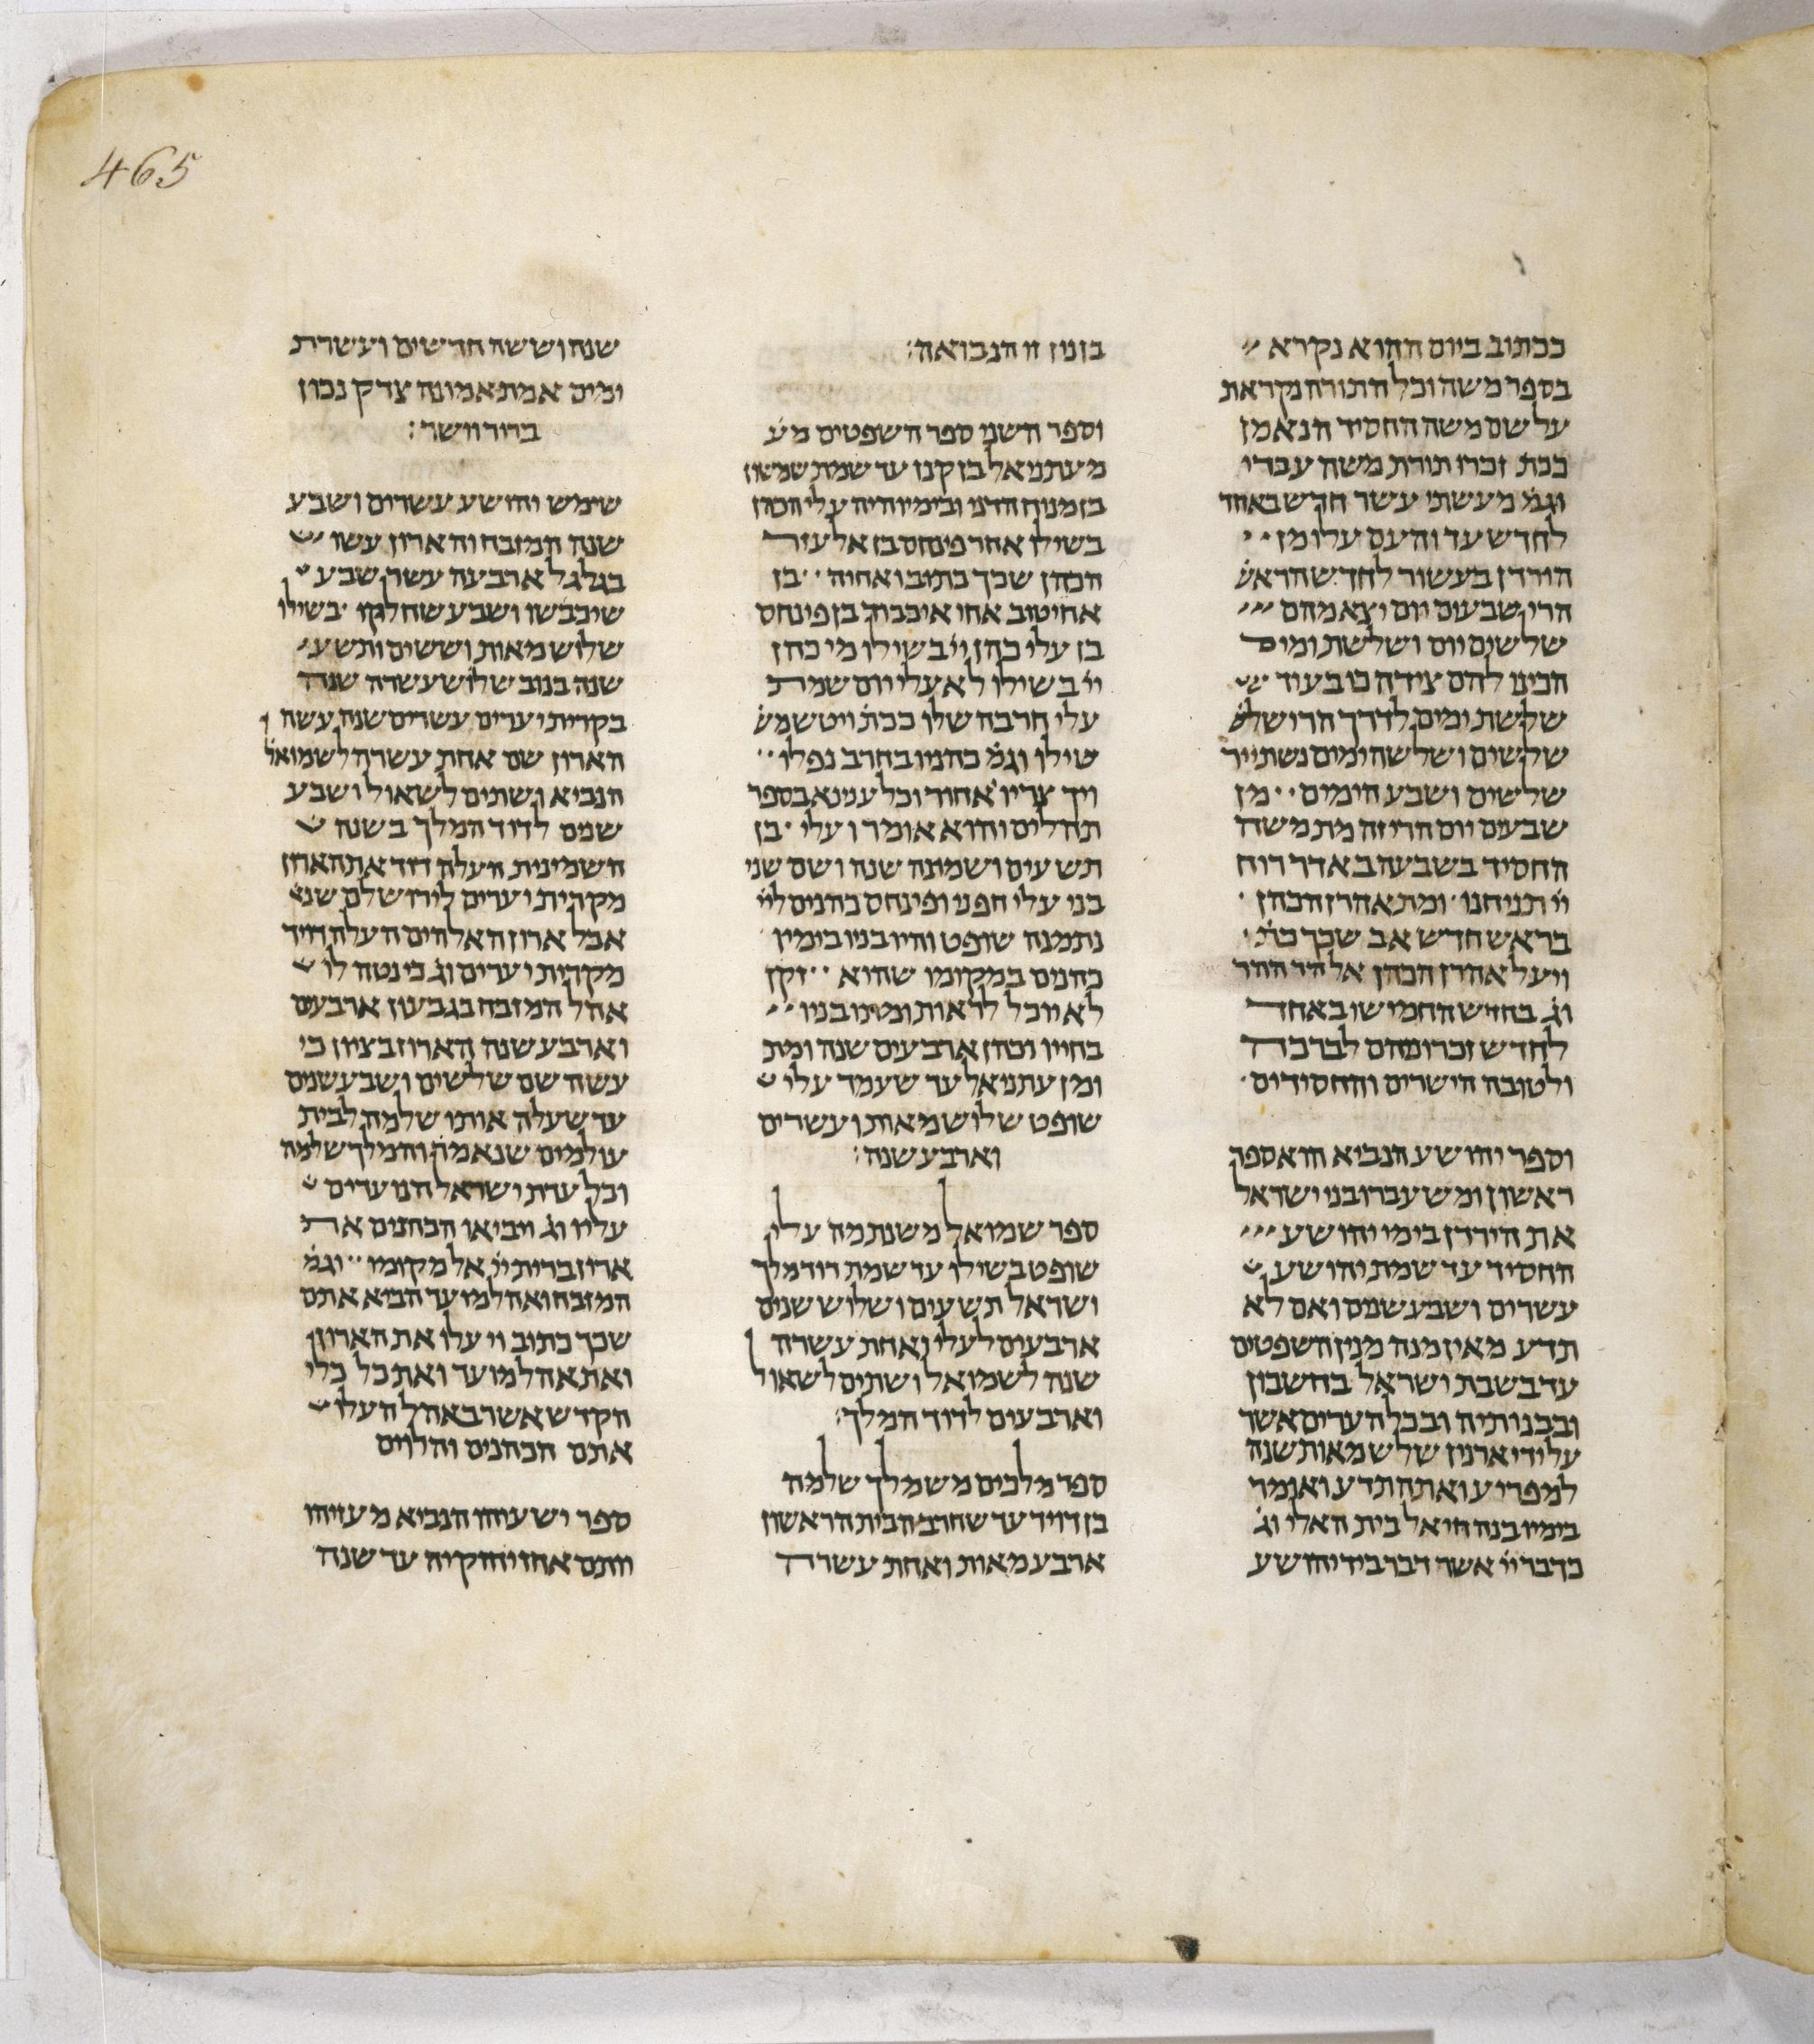 465
ככתוב ביום ההוא נקרא
בספר משה וכל התורה נקראת
על שם משה החסיד הנאמן
ככת׳ זכרו תורת משה עבדי
וגמ׳ מעשתי עשר חדש באחד
לחדש עד והעם עלו מן
הירדן בעשור לחדש הראש׳
הרי שבעים יום יצא מהם
שלשים יום ושלשת ימים
הכינו להם צידה כי בעוד
שלשת ימים לדרך הרי שלש׳
שלשים ושלשה ימים נשתייר
שלשים ושבע הימים מן
שבעים יום הרי זה מת משה
החסיד בשבעה באדר רוח
יי תניחנו ומת אהרן הכהן
בראש חדש אב שכך כת׳
ויעל אהרן הכהן אל הר ההר
וג׳ בחדש החמישי באחד
לחדש זכרונהם לברכה
ולטובה הישרים והחסידים
וספר יהושע הנביא הוא ספר
ראשון ומשעברו בני ישראל
את הירדן בימי יהושע
החסיד עד שמת יהושע
עשרים ושבע שנים ואם לא
תדע מאין מנה מנין השפטים
עד בשבת ישראל בחשבון
ובבנותיה ובכל הערים אשר
על ידי ארנון שלש מאות שנה
למפריע ואתה תדע ואומר
בימיו בנה חיאל בית האלי וג׳
כדבר יי אשר דבר ביד יהושע
בן נון זו הנבואה׃
וספר השני ספר השפטים מע׳
מעתניאל בן קנז עד שמת שמשון
בזמניה הדני ובימיו היה עלי הכהן
בשילו אחר פינחס בן אלעזר
הכהן שכך כתיב ואחיה בן
אחיטוב אחי איכבוד בן פינחס
בן עלי כהן יי בשילו מי כהן
יי בשילו לא עלי יום שמת
עלי חרבה שלו ככת׳ ויטש משׁ׳
שילו וגמ׳ כהניו בחרב נפלו
ויך צריו אחור וכל ענינא בספר
תהלים והוא אומר ועלי בן
תשעים ושמנה שנה ושם שני
בני עלי חפני ופינחס כהנים ליי
נתמנה שופט והיו בניו בימיו
כהנים במקומו שהוא זקן
לא יוכל לראות ומתו בניו
בחייו וכהן ארבעים שנה ומת
ומן עתניאל עד שעמד עלי
שופט שלוש מאות ועשרים
וארבע שנה׃
ספר שמואל משנתמנה עלי
שופט בשילו עד שמת דוד מלך
ישראל תשעים ושלוש שנים
ארבעים לעלי ואחת עשרה
שנה לשמואל ושתים לשאול
וארבעים לדוד המלך׃
ספר מלכים משמלך שלמה
בן דויד עד שחרב הבית הראשון
ארבע מאות ואחת עשרה
שנה וששה חדשים ועשרת
ימים אמת אמונה צדק נכון
ברור וישר׃
שימש יהושע עשרים ושבע
שנה המזבח והארון עשו
בגלגל ארבעה עשר שבע
שיכבשו ושבע שחלקו בשילו
שלוש מאות וששים ותשע
שנה בנוב שלוש עשרה שנה
בקרית יערים עשרים שנה עשה
הארון שם אחת עשרה לשמואל
הנביא ושתים לשאול ושבע
שנים לדוד המלך בשנה
השמינית העלה דוד את הארון
מקרית יערים לירושלם שנ׳
אבל ארון האלהים העלה דויד
מקרית יערים וג׳ כי נטה לו
אהל המזבח בגבעון ארבעים
וארבע שנה הארון בציון כי
עשה שם שלשים ושבע שנים
עד שעלה אותו שלמה לבית
עולמים שנאמר והמלך שלמה
וכל עדת ישראל הנועדים
עליו וג׳ ויביאו הכהנים את
ארון ברית יי אל מקומו וגמ׳
המזבח ואהל מועד הביא אתם
שכך כתוב ויעלו את הארון
ואת אהל מועד ואת כל כלי
הקדש אשר באהל העלו
אתם הכהנים והלוים
ספר ישעיהו הנביא מעזיהו
יותם אחז יחזקיה עד שנה